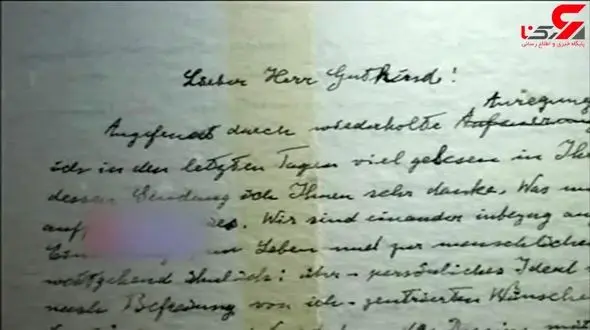 رکنا
پایگاه خبری و اطلاع رسانی
Lieber Herr Gutkind!
Anregung
Angefeuert durch wiederholte
ich in den letzten Tagen viel gelesen in Ihr
dessen Sendung ich Ihnen sehr danke. Was
auf es. Wir sind einander inbezug au
Leben und zur menschliche
weitgehend ähnlich: über-persönliches Ideal
nach Befreiung von ich-zentrierten Wünsche